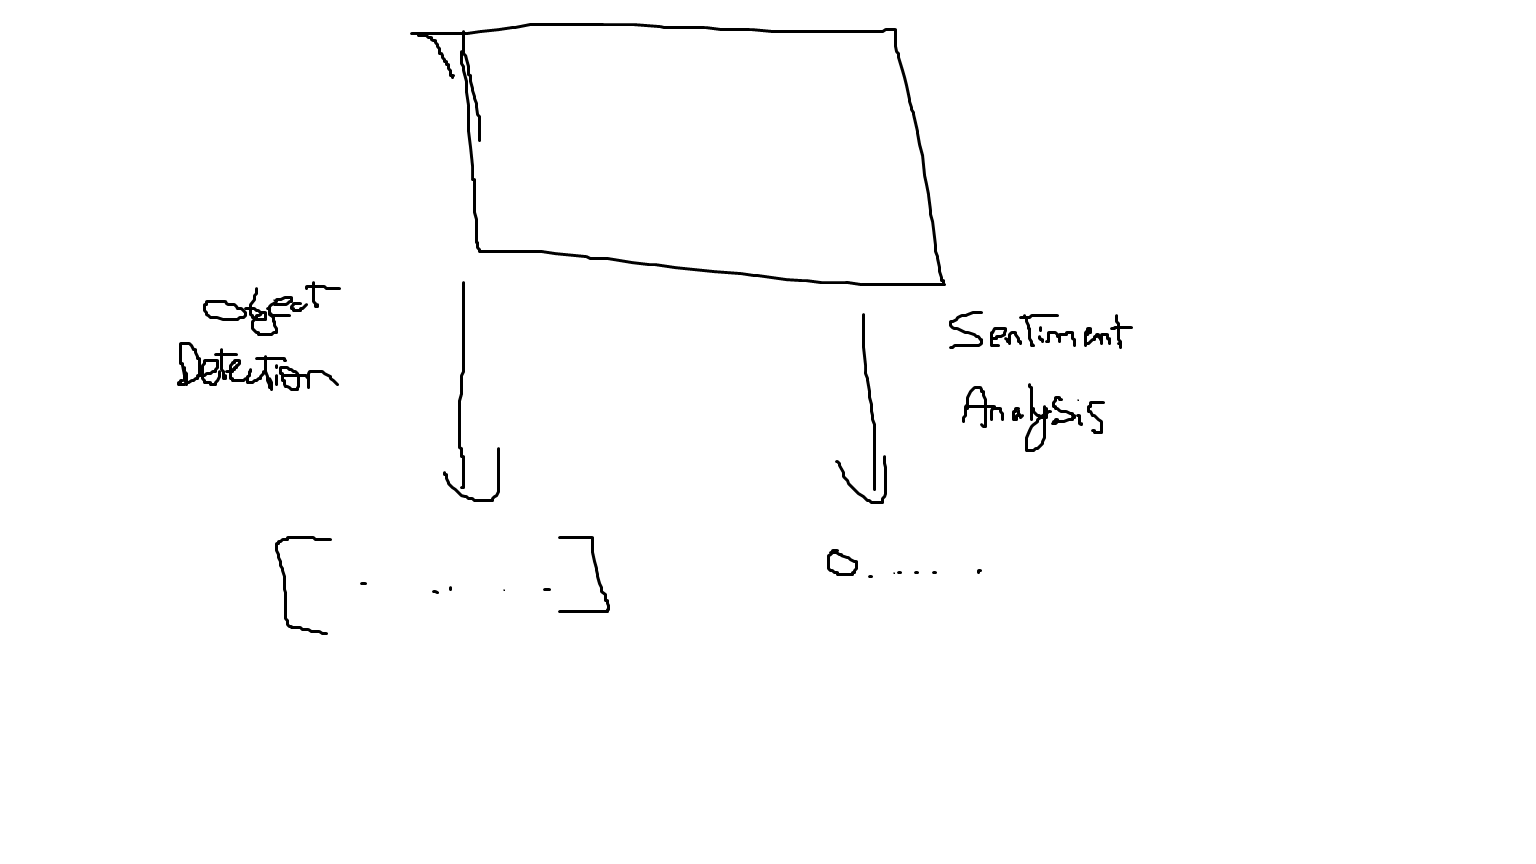 Object
Detection
Sentiment
Analysis
[ . . . . . ]
0......